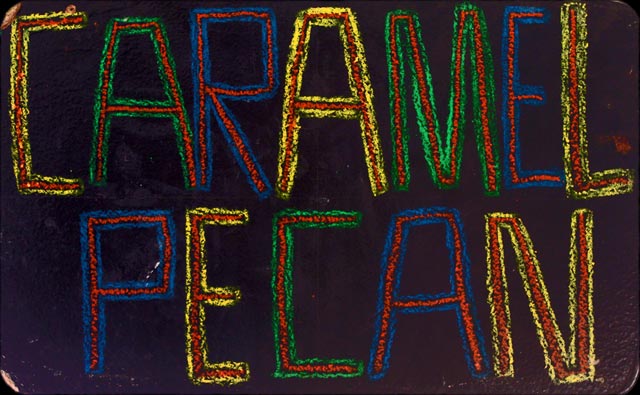 CARAMEL
PECAN